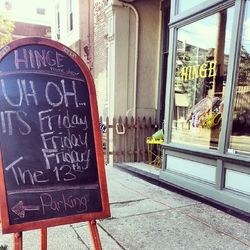 HINGE
UH OH...
ITS Friday
Friday
Friday!
The 13th
← Parking
HINGE